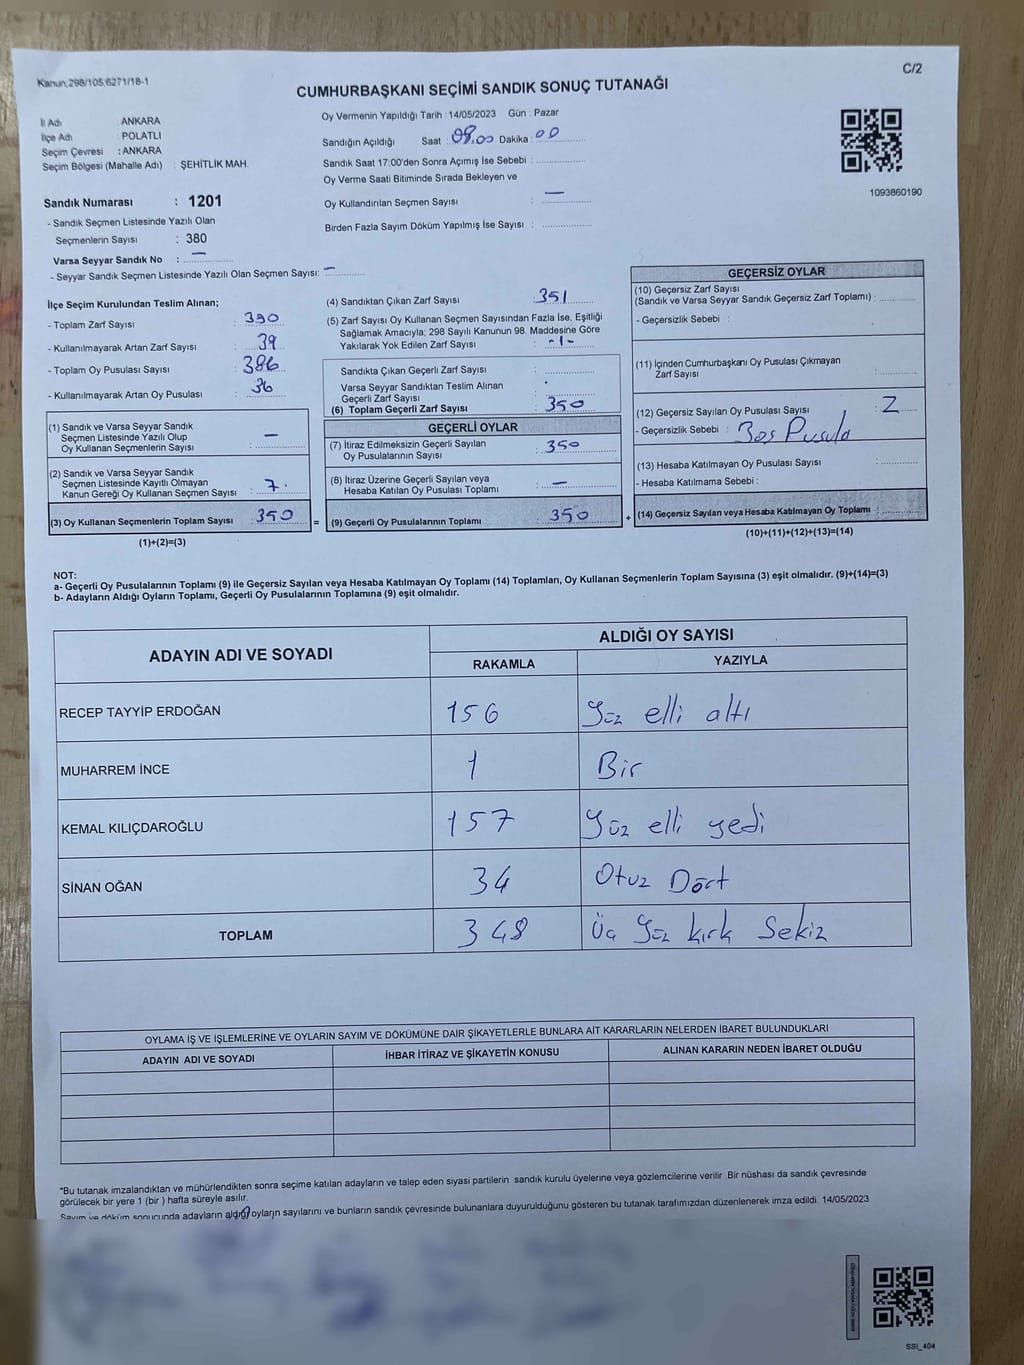 Kanun:298/105;6271/18-1
C/2
CUMHURBAŞKANI SEÇİMİ SANDIK SONUÇ TUTANAĞI
İl Adı : ANKARA
İlçe Adı : POLATLI
Seçim Çevresi : ANKARA
Seçim Bölgesi (Mahalle Adı) : ŞEHİTLİK MAH.
Oy Vermenin Yapıldığı Tarih : 14/05/2023 Gün : Pazar
Sandığın Açıldığı Saat : 08.00 Dakika : 00
Sandık Saat 17:00'den Sonra Açımış İse Sebebi :
Oy Verme Saati Bitiminde Sırada Bekleyen ve
Oy Kullandırılan Seçmen Sayısı : —
Birden Fazla Sayım Döküm Yapılmış İse Sayısı :
1093860190
Sandık Numarası : 1201
- Sandık Seçmen Listesinde Yazılı Olan
Seçmenlerin Sayısı : 380
Varsa Seyyar Sandık No : —
- Seyyar Sandık Seçmen Listesinde Yazılı Olan Seçmen Sayısı: —
İlçe Seçim Kurulundan Teslim Alınan;
- Toplam Zarf Sayısı : 390
- Kullanılmayarak Artan Zarf Sayısı : 39
- Toplam Oy Pusulası Sayısı : 386
- Kullanılmayarak Artan Oy Pusulası : 36
(1) Sandık ve Varsa Seyyar Sandık
Seçmen Listesinde Yazılı Olup
Oy Kullanan Seçmenlerin Sayısı : —
(2) Sandık ve Varsa Seyyar Sandık
Seçmen Listesinde Kayıtlı Olmayan
Kanun Gereği Oy Kullanan Seçmen Sayısı : 7.
(3) Oy Kullanan Seçmenlerin Toplam Sayısı : 350
(1)+(2)=(3)
(4) Sandıktan Çıkan Zarf Sayısı : 351
(5) Zarf Sayısı Oy Kullanan Seçmen Sayısından Fazla İse, Eşitliği
Sağlamak Amacıyla; 298 Sayılı Kanunun 98. Maddesine Göre
Yakılarak Yok Edilen Zarf Sayısı : -1-
Sandıkta Çıkan Geçerli Zarf Sayısı :
Varsa Seyyar Sandıktan Teslim Alınan
Geçerli Zarf Sayısı :
(6) Toplam Geçerli Zarf Sayısı : 350
GEÇERLİ OYLAR
(7) İtiraz Edilmeksizin Geçerli Sayılan
Oy Pusulalarının Sayısı : 350
(8) İtiraz Üzerine Geçerli Sayılan veya
Hesaba Katılan Oy Pusulası Toplamı : —
= (9) Geçerli Oy Pusulalarının Toplamı : 350 +
GEÇERSİZ OYLAR
(10) Geçersiz Zarf Sayısı
(Sandık ve Varsa Seyyar Sandık Geçersiz Zarf Toplamı) :
- Geçersizlik Sebebi :
(11) İçinden Cumhurbaşkanı Oy Pusulası Çıkmayan
Zarf Sayısı :
(12) Geçersiz Sayılan Oy Pusulası Sayısı : 2
- Geçersizlik Sebebi : Boş Pusula
(13) Hesaba Katılmayan Oy Pusulası Sayısı :
- Hesaba Katılmama Sebebi :
(14) Geçersiz Sayılan veya Hesaba Katılmayan Oy Toplamı :
(10)+(11)+(12)+(13)=(14)
NOT:
a- Geçerli Oy Pusulalarının Toplamı (9) ile Geçersiz Sayılan veya Hesaba Katılmayan Oy Toplamı (14) Toplamları, Oy Kullanan Seçmenlerin Toplam Sayısına (3) eşit olmalıdır. (9)+(14)=(3)
b- Adayların Aldığı Oyların Toplamı, Geçerli Oy Pusulalarının Toplamına (9) eşit olmalıdır.
ADAYIN ADI VE SOYADI
ALDIĞI OY SAYISI
RAKAMLA YAZIYLA
RECEP TAYYİP ERDOĞAN 156 Yüz elli altı
MUHARREM İNCE 1 Bir
KEMAL KILIÇDAROĞLU 157 Yüz elli yedi
SİNAN OĞAN 34 Otuz Dört
TOPLAM 348 Üç Yüz kırk Sekiz
OYLAMA İŞ VE İŞLEMLERİNE VE OYLARIN SAYIM VE DÖKÜMÜNE DAİR ŞİKAYETLERLE BUNLARA AİT KARARLARIN NELERDEN İBARET BULUNDUKLARI
ADAYIN ADI VE SOYADI İHBAR İTİRAZ VE ŞİKAYETİN KONUSU ALINAN KARARIN NEDEN İBARET OLDUĞU
*Bu tutanak imzalandıktan ve mühürlendikten sonra seçime katılan adayların ve talep eden siyasi partilerin sandık kurulu üyelerine veya gözlemcilerine verilir. Bir nüshası da sandık çevresinde
görülecek bir yere 1 (bir ) hafta süreyle asılır.
Sayım ve döküm sonucunda adayların aldığı oyların sayılarını ve bunların sandık çevresinde bulunanlara duyurulduğunu gösteren bu tutanak tarafımızdan düzenlenerek imza edildi. 14/05/2023
SSI_404